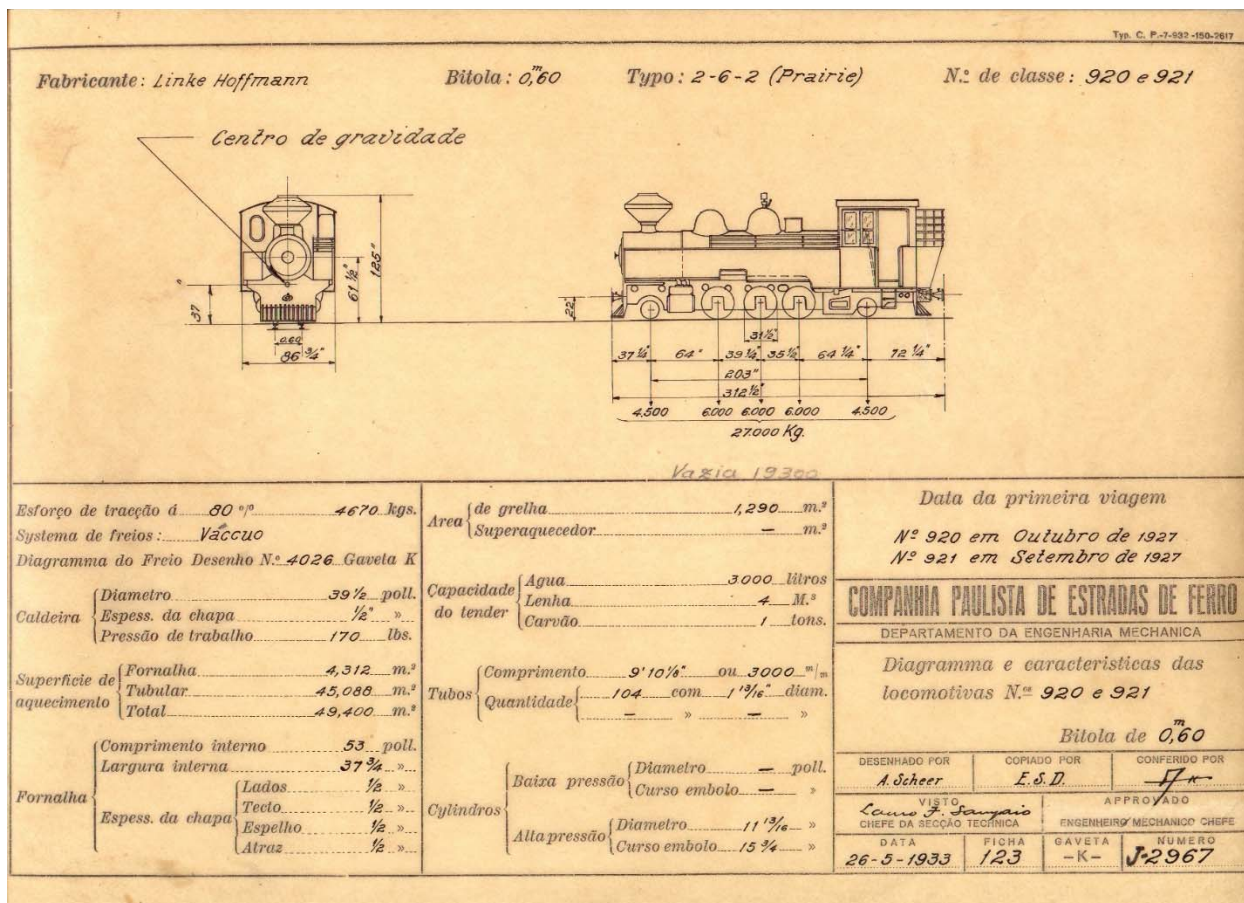 Typ. C. P.-7-932-150-2617
Fabricante: Linke Hoffmann Bitola: 0,60 m Typo: 2-6-2 (Prairie) N.º de classe: 920 e 921
Centro de gravidade
37"
61 ½"
125"
0.60
86 ¾"
22"
31 ½"
37 ¼" 64" 39 ¼" 35 ½" 64 ¼" 72 ¼"
203"
312 ½"
4.500 6.000 6.000 6.000 4.500
27.000 Kg.
Vazia 19300
Esforço de tracção á 80 º/º 4670 kgs.
Systema de freios: Váccuo
Diagramma do Freio Desenho N.º 4026 Gaveta K
Caldeira
Diametro 39 ½ poll.
Espess. da chapa ½" »
Pressão de trabalho 170 lbs.
Superficie de aquecimento
Fornalha 4,312 m.²
Tubular 45,088 m.²
Total 49,400 m.²
Fornalha
Comprimento interno 53 poll.
Largura interna 37 ¾ »
Espess. da chapa
Lados ½ »
Tecto ½ »
Espelho ½ »
Atraz ½ »
Area
de grelha 1,290 m.²
Superaquecedor — m.²
Capacidade do tender
Agua 3.000 litros
Lenha 4 M.³
Carvão 1 tons.
Tubos
Comprimento 9' 10 ⅛" ou 3000 m/m
Quantidade
104 com 1 13/16" diam.
— » — »
Cylindros
Baixa pressão
Diametro — poll.
Curso embolo — »
Alta pressão
Diametro 11 13/16 »
Curso embolo 15 ¾ »
Data da primeira viagem
Nº 920 em Outubro de 1927
Nº 921 em Setembro de 1927
COMPANHIA PAULISTA DE ESTRADAS DE FERRO
DEPARTAMENTO DA ENGENHARIA MECHANICA
Diagramma e caracteristicas das
locomotivas N.ºs 920 e 921
Bitola de 0,60 m
DESENHADO POR COPIADO POR CONFERIDO POR
A. Scheer E.S.D.
VISTO APPROVADO
CHEFE DA SECÇÃO TECHNICA ENGENHEIRO MECHANICO CHEFE
DATA FICHA GAVETA NUMERO
26-5-1933 123 -K- J-2967